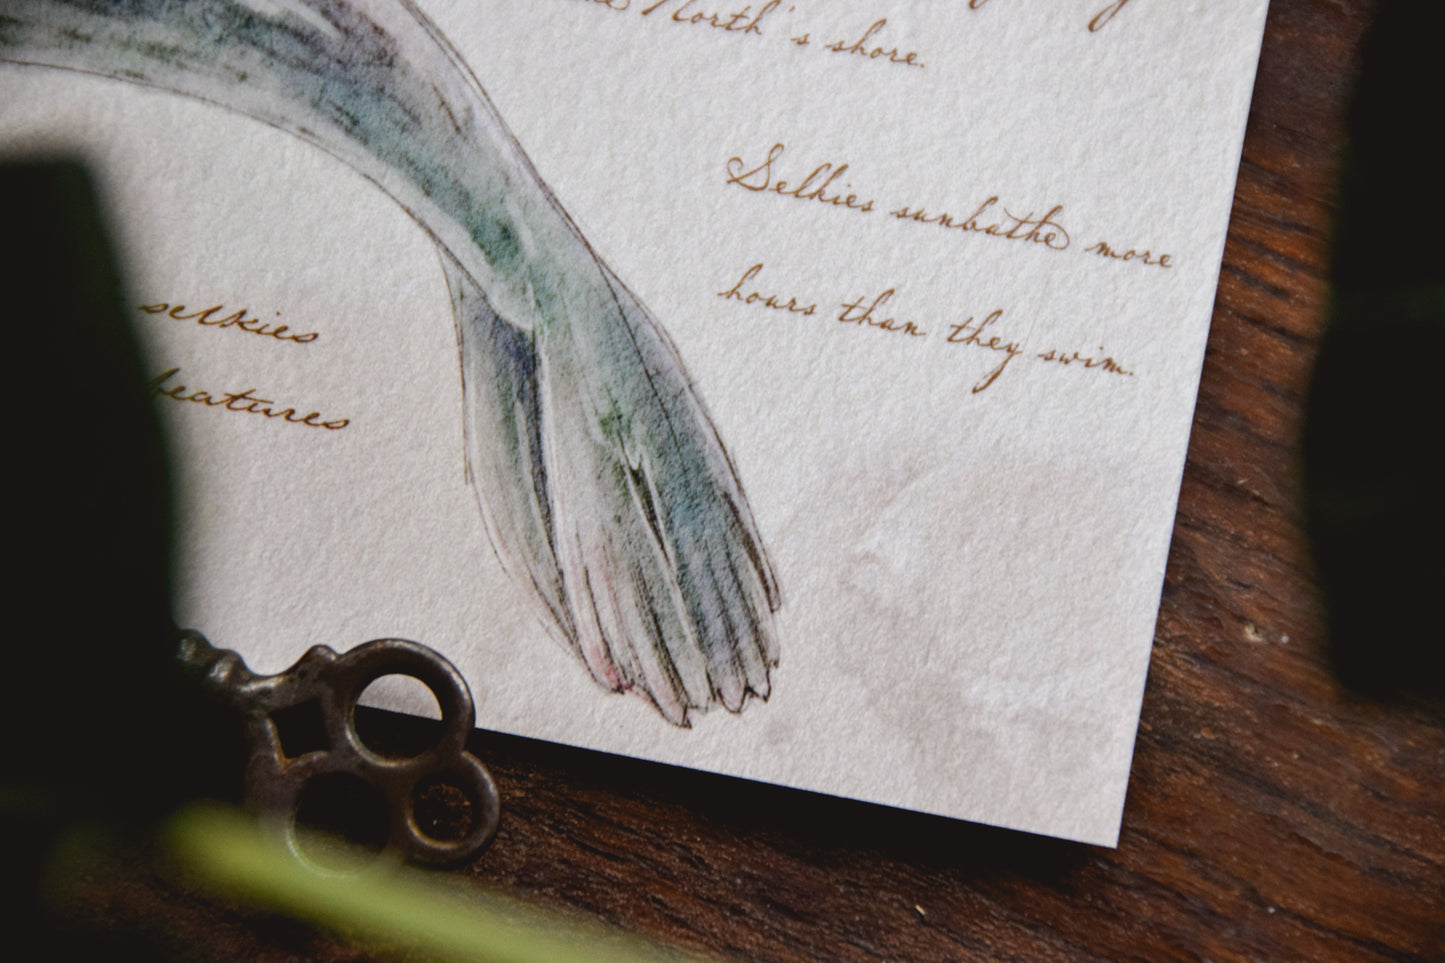 North's shore.
Selkies sunbathe more
hours than they swim.
selkies
features